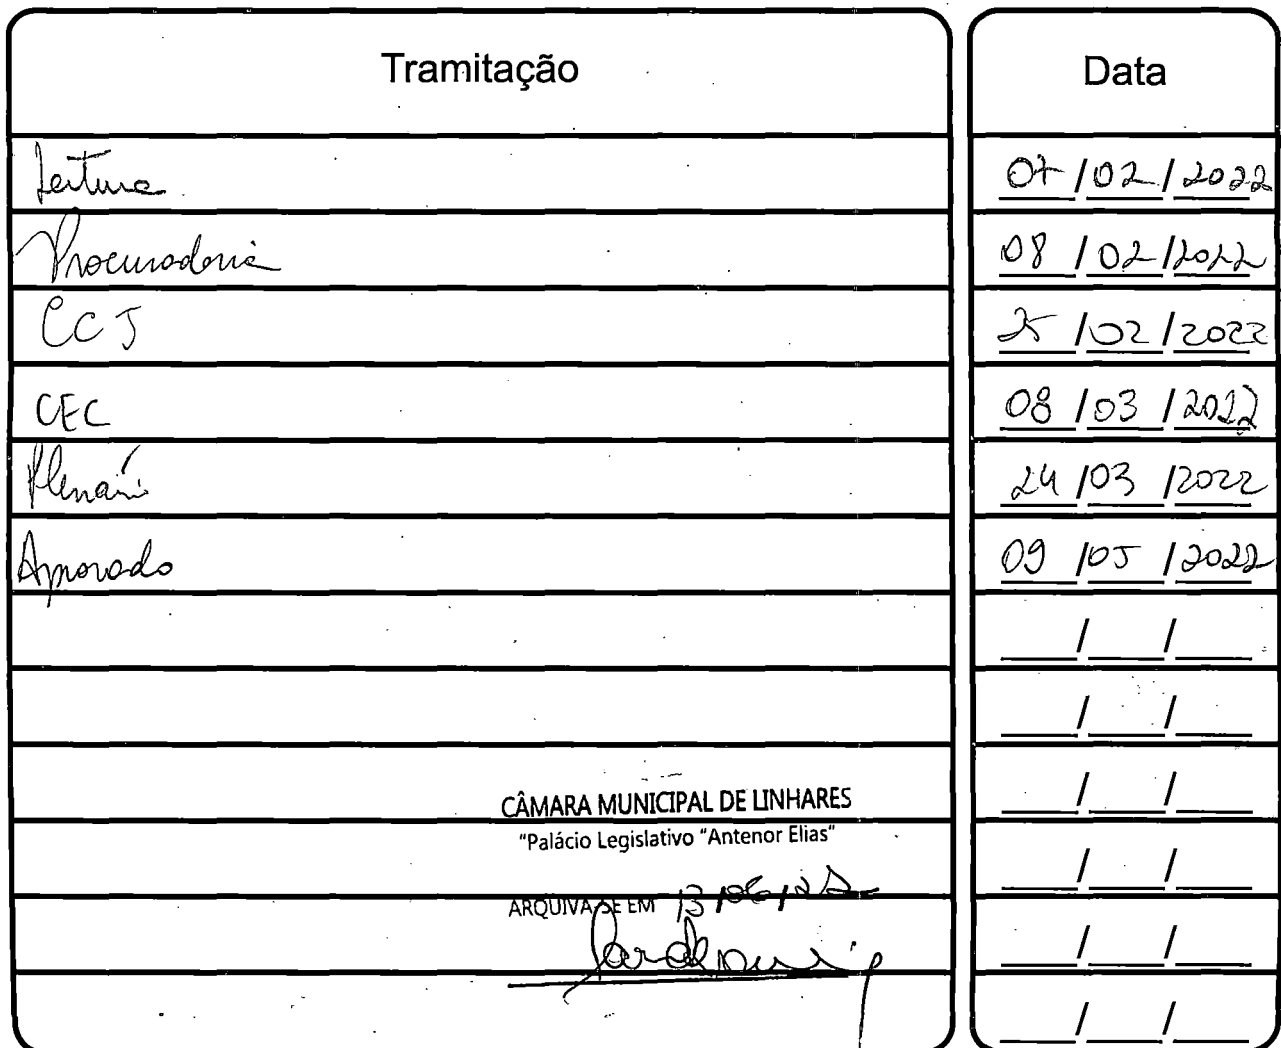 Tramitação Data
Leitura 07/02/2022
Procuradoria 08/02/2022
CCJ 25/02/2022
CEC 08/03/2022
Plenári 24/03/2022
Aprovado 09/05/2022
CÂMARA MUNICIPAL DE LINHARES
"Palácio Legislativo "Antenor Elias"
ARQUIVA-SE EM 13/06/22